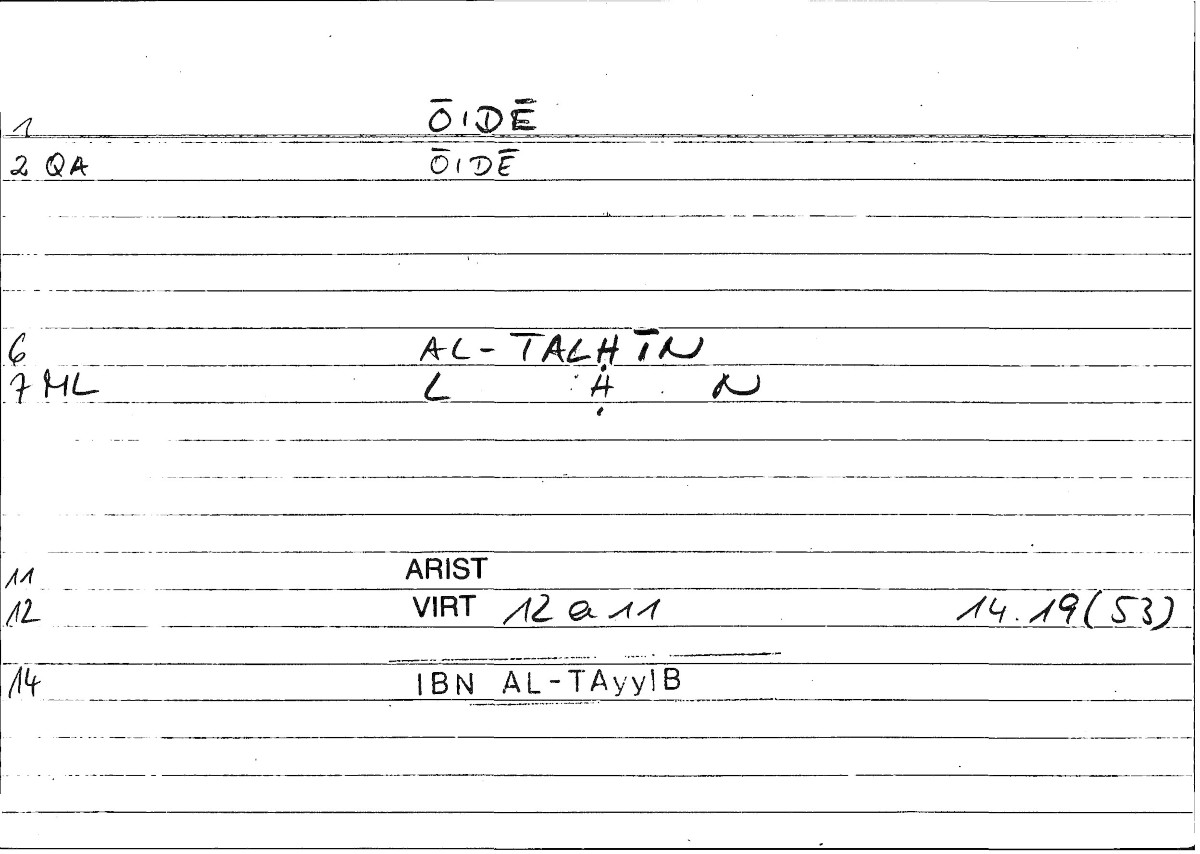 1 ŌIDĒ
2 QA ŌIDĒ
6 AL-TALḤĪN
7 ML L Ḥ N
11 ARIST
12 VIRT 12 a 11 14.19(53)
14 IBN AL-TAyyIB